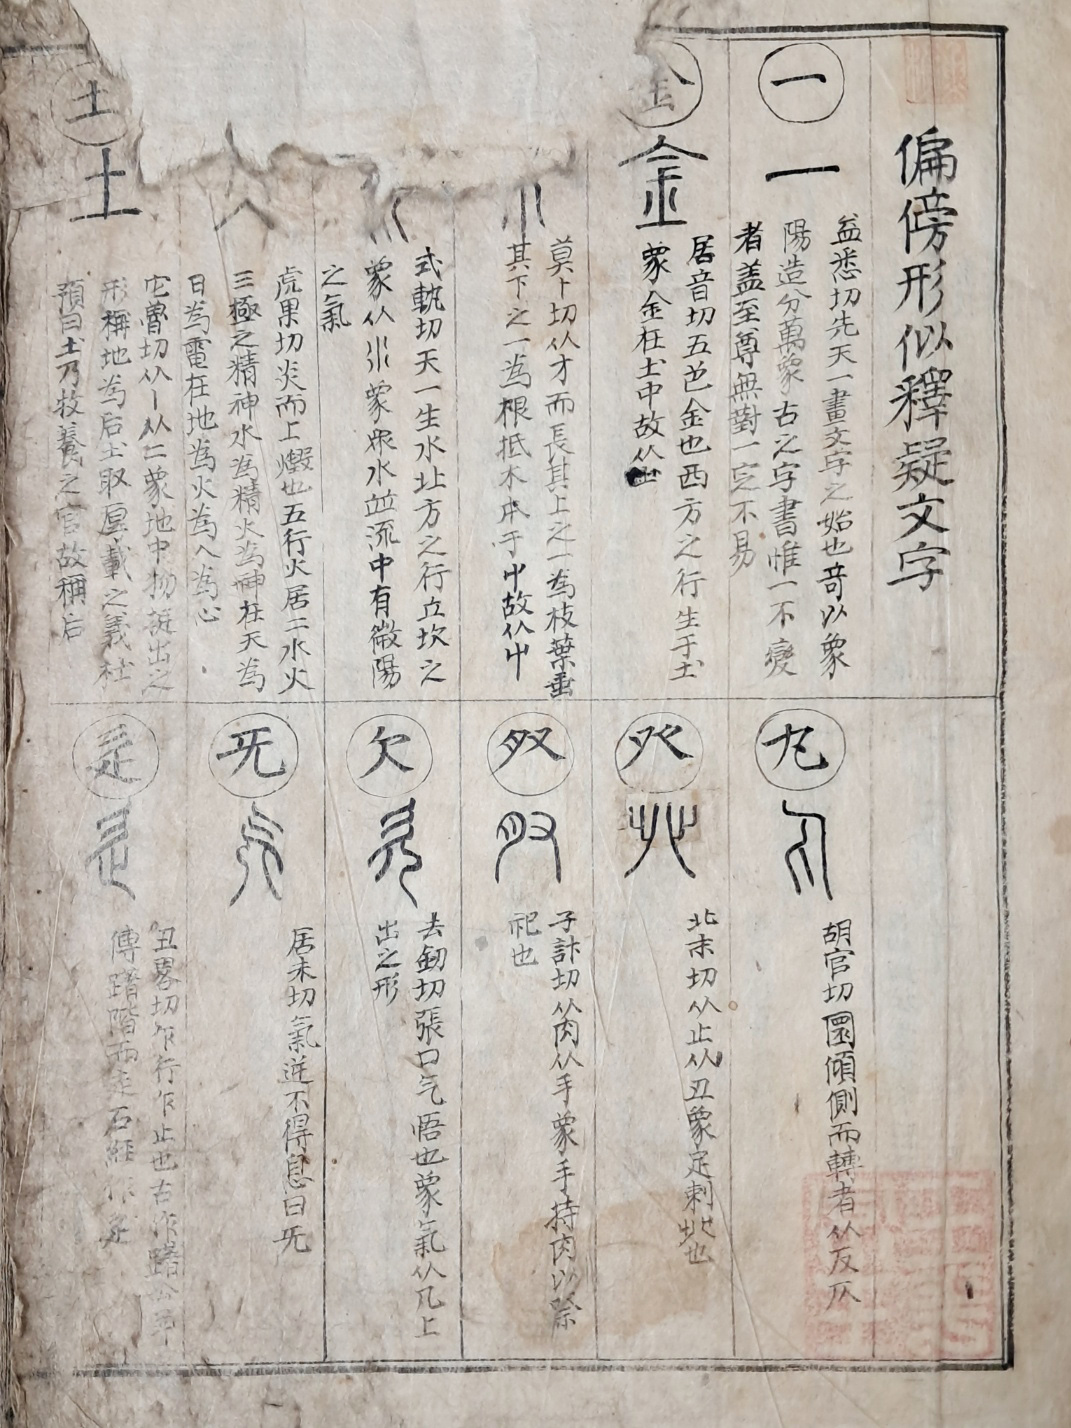 偏傍形似釋疑文字
一
一
益悉切先天一畫文字之始也竒以象
陽造分萬象古之字書惟一不變
者盖至尊無對一定不易
金
金
居音切五色金也西方之行生于土
象金在土中故从土
莫卜切从才而長其上之一為枝葉垂
其下之一為根抵木本于屮故从屮
式軌切天一生水北方之行立坎之
象从川象眾水並流中有微陽
之氣
虎果切炎而上燬也五行火居二水火
三極之精神水為精火為神在天為
日為電在地為火為人為心
土
土
它魯切从丨从二象地中物挺出之
形稱地為后土取厚載之義社
預曰土乃牧養之官故稱后
丸
胡官切圜傾側而轉者从反仄
癶
北末切从止从丑象足剌𣥠也
𡖈
子計切从肉从手象手持肉以除
祀也
欠
去劒切張口气悟也象氣从几上
出之形
旡
居未切氣逆不得息曰旡
辵
丑畧切乍行乍止也古作躇公羊
傳躇階而走石經作辵